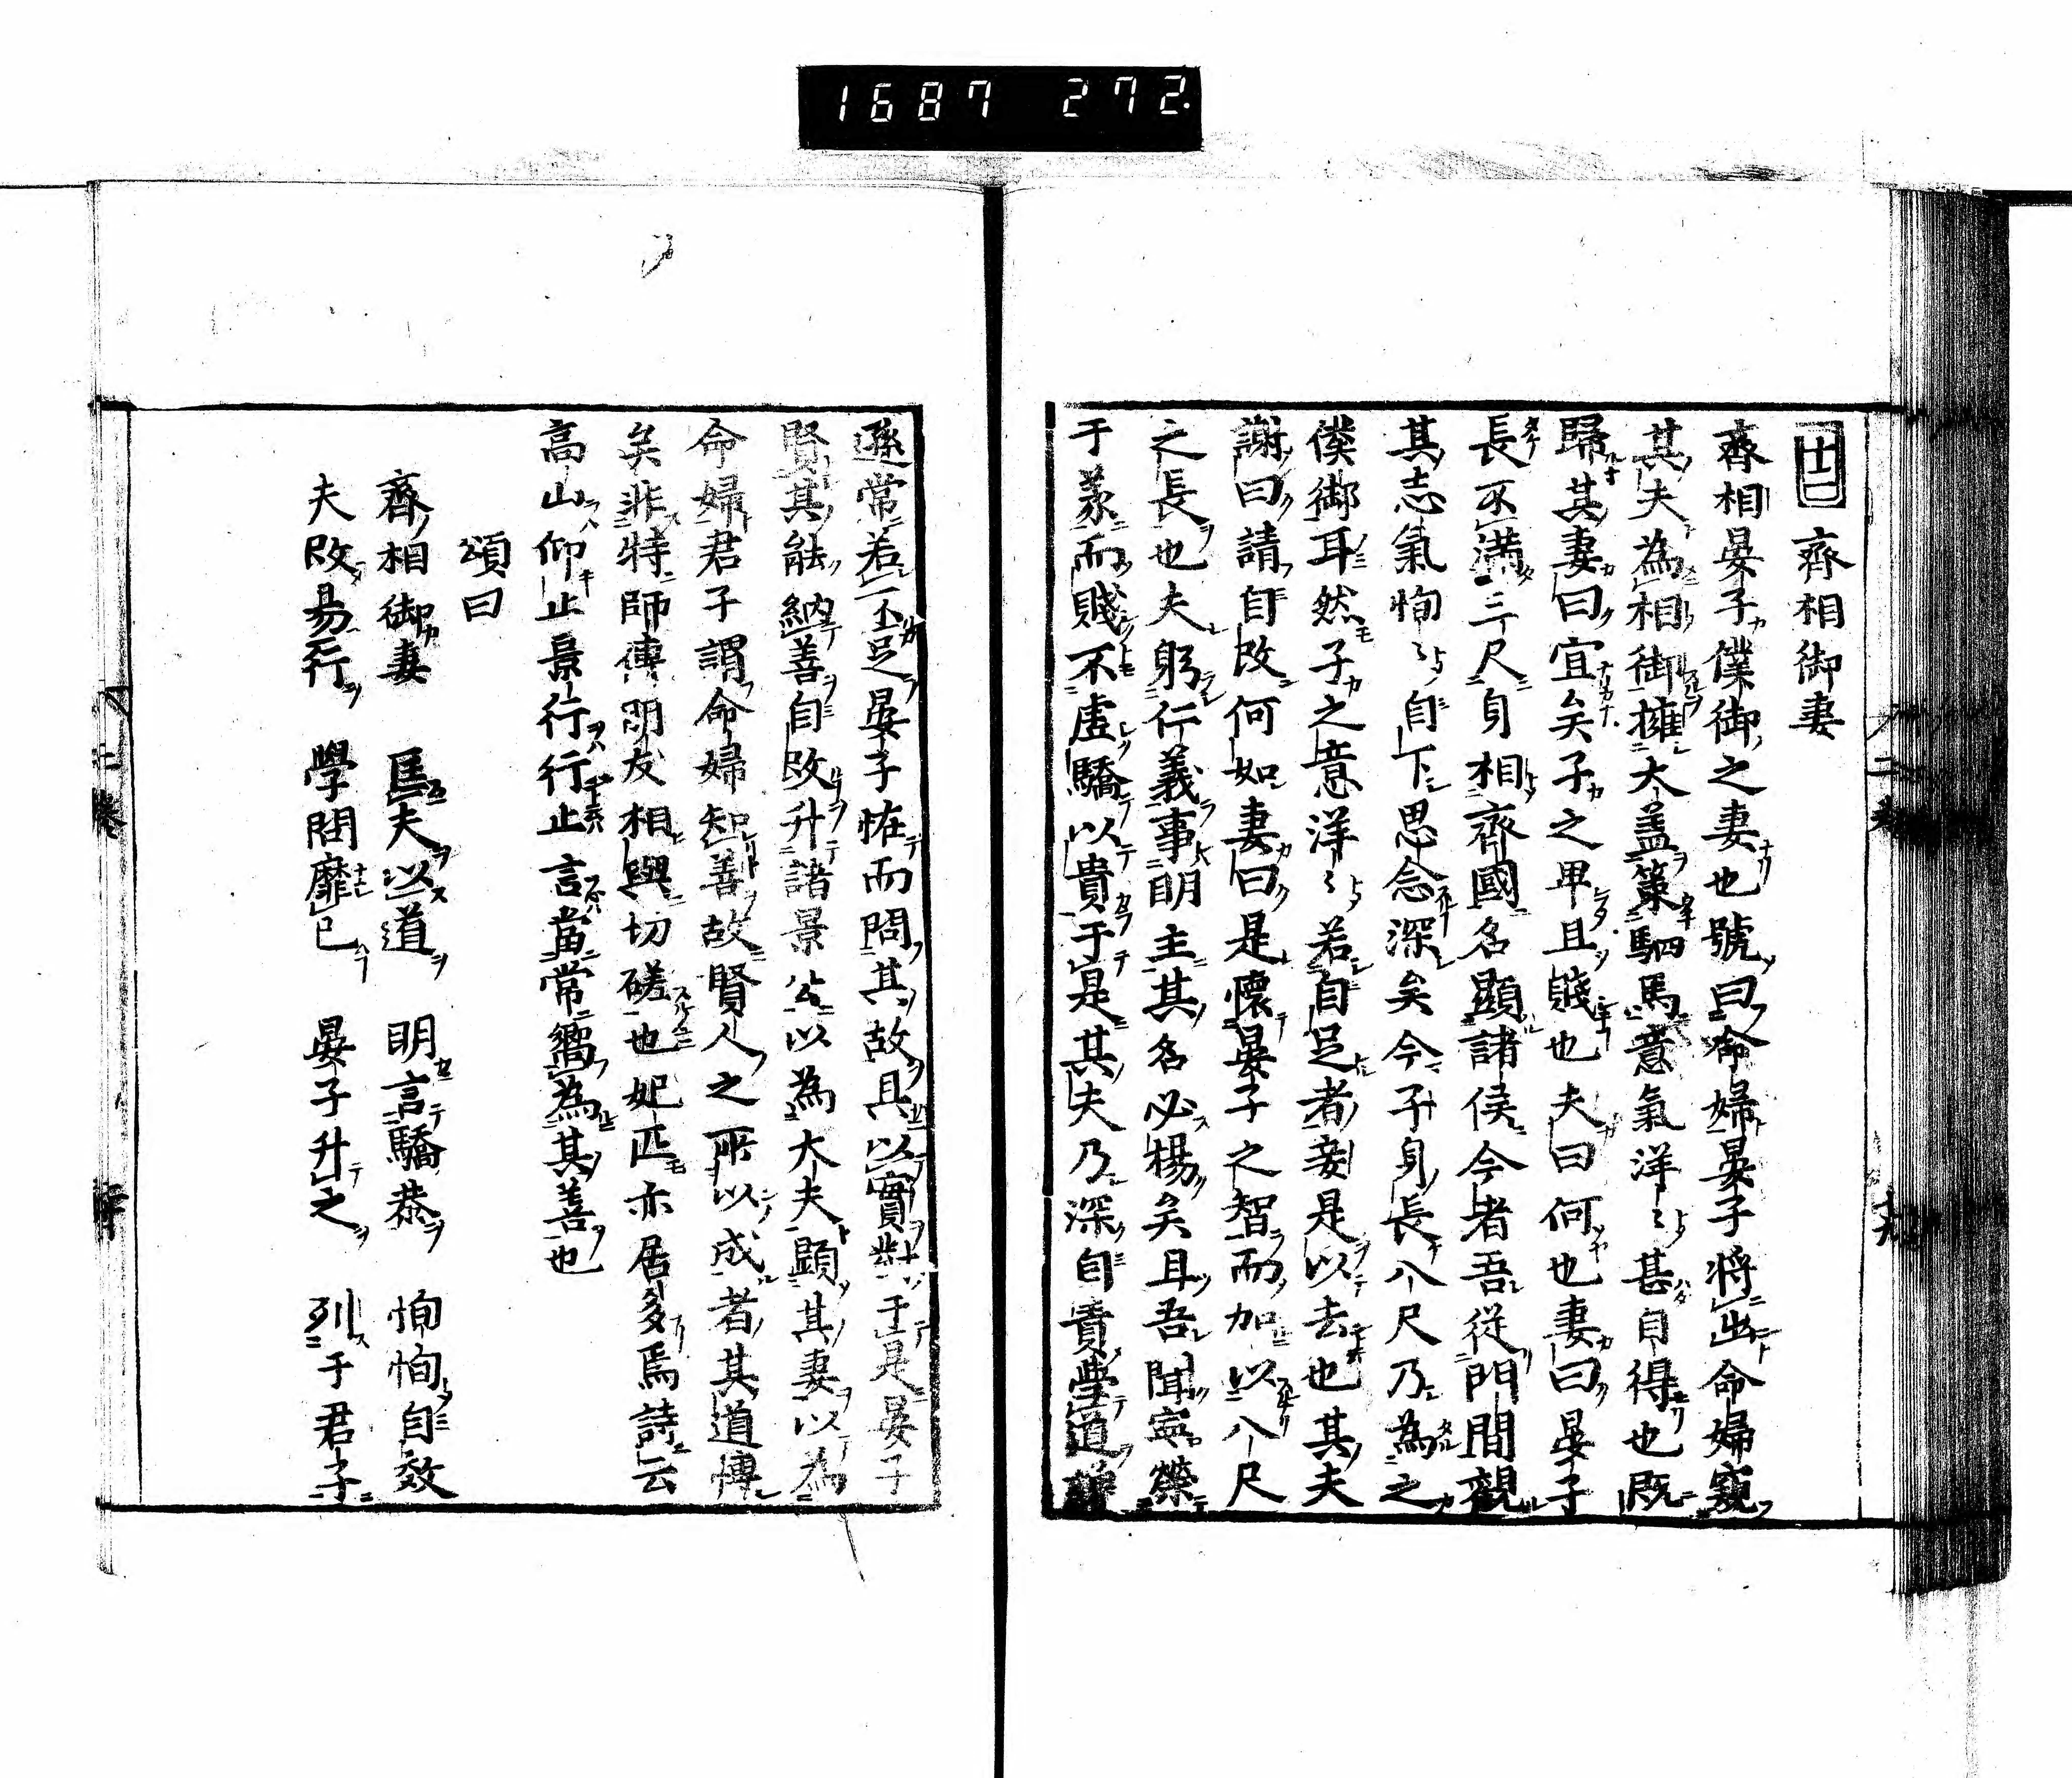 1687 272.
十二 齊相御妻
齊相晏子僕御之妻也號曰命婦晏子將出命婦窺
其夫為相御擁大蓋策駟馬意氣洋〻甚自得也既
歸其妻曰宜矣子之卑且賤也夫曰何也妻曰晏子
長不滿三尺身相齊國名顯諸侯今者吾從門間觀
其志氣恂〻自下思念深矣今子身長八尺乃為之
僕御耳然子之意洋〻若自足者妾是以去也其夫
謝曰請自改何如妻曰是懷晏子之智而加以八尺
之長也夫躬行義事明主其名必楊矣且吾聞寧榮
于義而賤不虛驕以貴于是其夫乃深自責學道謙
遜常若不足晏子恠而問其故具以實對于是晏子
賢其能納善自改升諸景公以為大夫顯其妻以為
命婦君子謂命婦知善故賢人之所以成者其道博
矣非特師傅朋友相與切磋也妃匹亦居多焉詩云
高山仰止景行行止言當常嚮為其善也
頌曰
齊相御妻 匡夫以道 明言驕恭 恂恂自效
夫改易行 學問靡已 晏子升之 列于君子